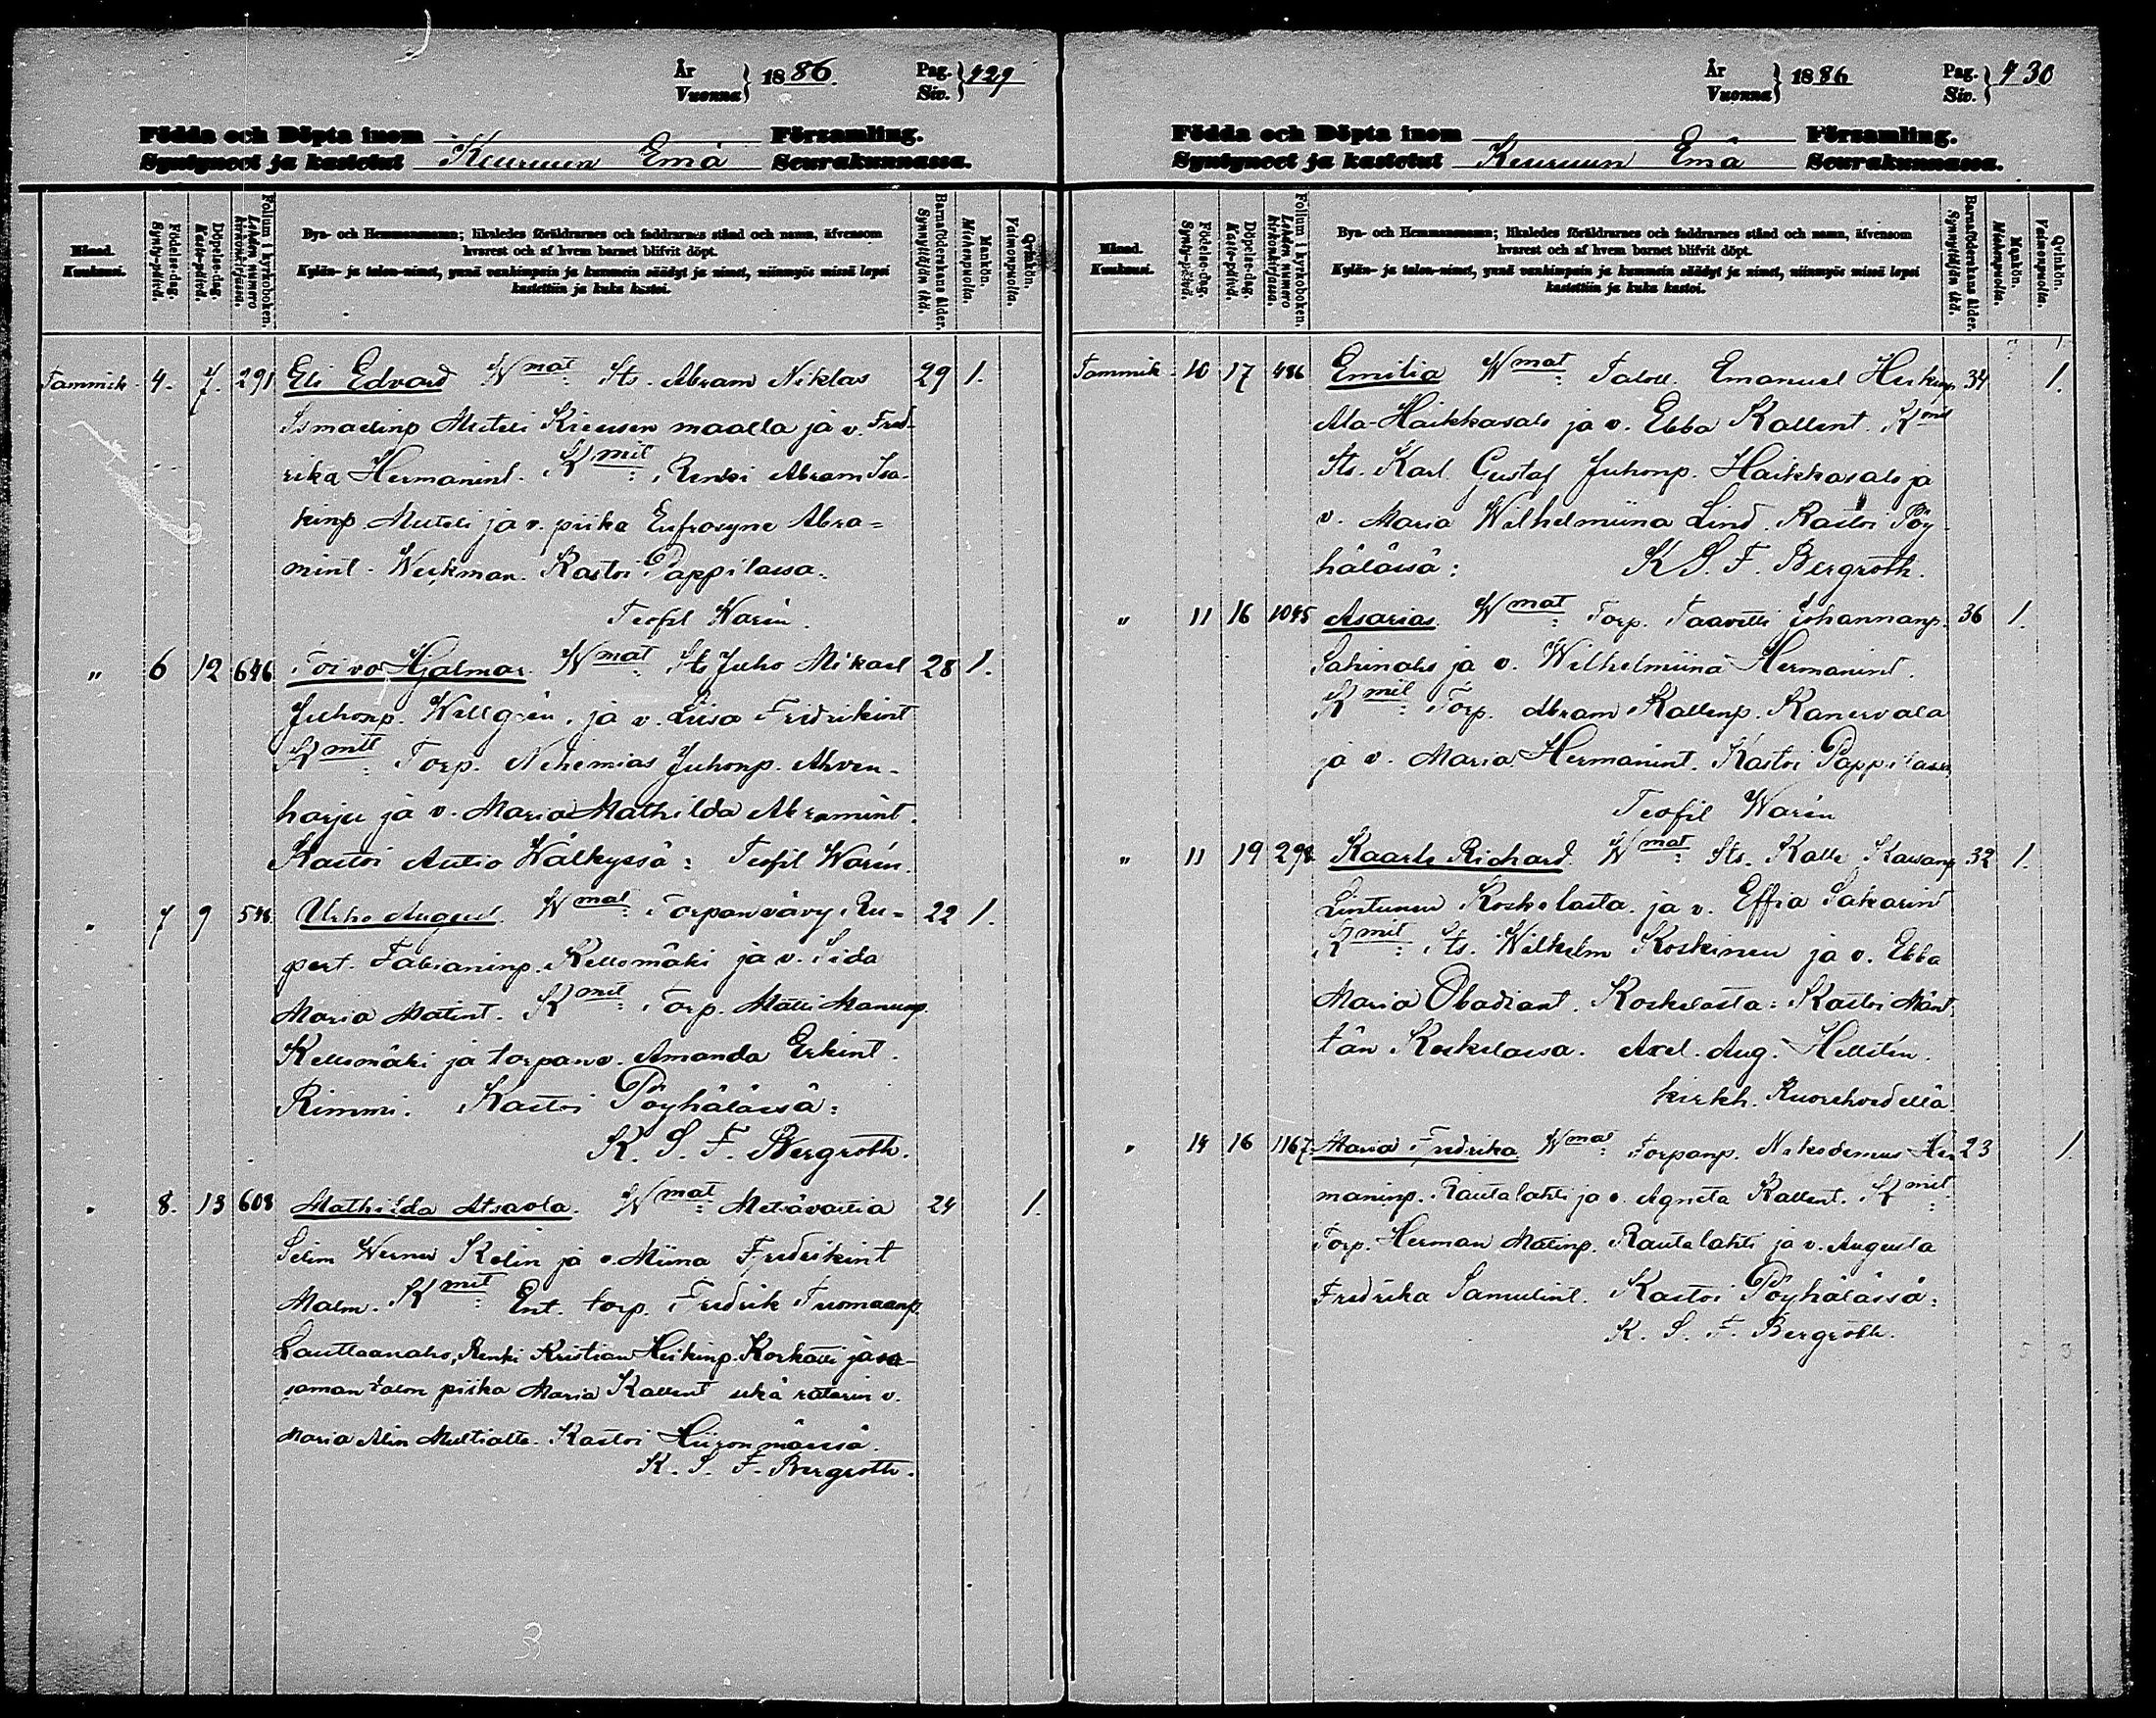 År Vuonna } 1886. Pag. Siv. } 429
Födda och Döpta inom Församling.
Syntyneet ja kastetut Keuruun Emä Seurakunnassa.
Månad. Kuukausi.
Födelse-dag. Synty-päivä.
Döpelse-dag. Kaste-päivä.
Follum i kyrkoboken. Lehden numero kirkonkirjassa.
Bya- och Hemmansnamn; likaledes föräldrarnes och faddrarnes stånd och namn, äfvensom
hvarest och af hvem barnet blifvit döpt.
Kylän- ja talon-nimet, ynnä vanhimpain ja kummein säädyt ja nimet, niinmyös missä lapsi
kastettiin ja kuka kastoi.
Barnaföderskans ålder. Synnyttäjän ikä.
Mankön. Miehenpuolia.
Qvinkön. Vaimonpuolia.
Tammik. 4. 7. 291 Eli Edvard Wmat: Its. Abram Niklas 29 1.
Ismaelinp. Muteli maalla ja v. Fred-
rika Hermanint. Kmit: Renki Abram Isa-
kinp. Muteli ja v. piika Eufrosyne Abra=
mint. Werkman. Kastoi Pappilassa.
Teofil Warén.
" 6 12 646 Toivo Hjalmar. Wmat Its Juho Mikael 28 1.
Juhonp. Wellgrén. ja v. Liisa Fridrikint
Kmit: Torp. Nehemias Juhonp. Ahven-
harju ja v. Maria Mathilda Abramint.
Kastoi Autio Wälkyssä: Teofil Warén.
" 7 9 548 Urho August. Wmat: Torpanvävy Ru= 22 1.
pert. Fabianinp. Kellomäki ja v. Iida
Maria Matint. Kmit: Torp. Matti Manunp.
Kellomäki ja torpan v. Amanda Erkint.
Rimmi. Kastoi Pöyhälässä:
K. S. F. Bergroth.
" 8. 13 608 Mathilda Atraola. Wmat: Metsävahtia 24 1.
Selim Werner Kelin ja v. Miina Fredrikint
Malm. Kmit: Ent. torp. Fredrik Tuomaanp.
Lauttaanaho, Renki Kristian Heikinp. Korkatti ja sa-
saman talon piika Maria Kallent sekä räätärin v.
Maria Alin Multialta. Kastoi Hiironmäessä.
K. S. F. Bergroth.
År Vuonna } 1886 Pag. Siv. } 430
Födda och Döpta inom Församling.
Syntyneet ja kastetut Keuruun Emä Seurakunnassa.
Månad. Kuukausi.
Födelse-dag. Synty-päivä.
Döpelse-dag. Kaste-päivä.
Follum i kyrkoboken. Lehden numero kirkonkirjassa.
Bya- och Hemmansnamn; likaledes föräldrarnes och faddrarnes stånd och namn, äfvensom
hvarest och af hvem barnet blifvit döpt.
Kylän- ja talon-nimet, ynnä vanhimpain ja kummein säädyt ja nimet, niinmyös missä lapsi
kastettiin ja kuka kastoi.
Barnaföderskans ålder. Synnyttäjän ikä.
Mankön. Miehenpuolia.
Qvinkön. Vaimonpuolia.
Tammik. 10 17 486 Emilia Wmat: Taloll. Emanuel Heikinp. 34 1.
Ala-Haikkasalo ja v. Ebba Kallent. Kmit
Its. Karl Gustaf Juhonp. Haikkasalo ja
v. Maria Wilhelmiina Lind. Kastoi Pöy-
hälässä: K. S. F. Bergroth.
" 11 16 1045 Asarias. Wmat: Torp. Taavetti Johannanp. 36 1.
Sahinaho ja v. Wilhelmiina Hermanint.
Kmit: Torp. Abram Kallenp. Kanervala
ja v. Maria Hermanint. Kastoi Pappilassa
Teofil Warén
" 11 19 298 Kaarle Richard. Wmat: Its. Kalle 32 1.
Lintunen Koskelasta. ja v. Effia Sakarint
Kmit: Its. Wilhelm Koskinen ja v. Ebba
Maria Obadiant. Koskelasta: Kastoi Mänt-
tän Koskelassa. Axel. Aug. Hellsén.
kirkh. Kuorehvedellä.
" 14 16 1167 Maria Fredrika Wmat: Torpanp. Nikodemus Her- 23 1.
maninp. Rautalahti ja v. Agneta Kallent. Kmit:
Torp. Herman Matinp. Rautalahti ja v. Augusta
Fredrika Samulint. Kastoi Pöyhälässä:
K. S. F. Bergroth.